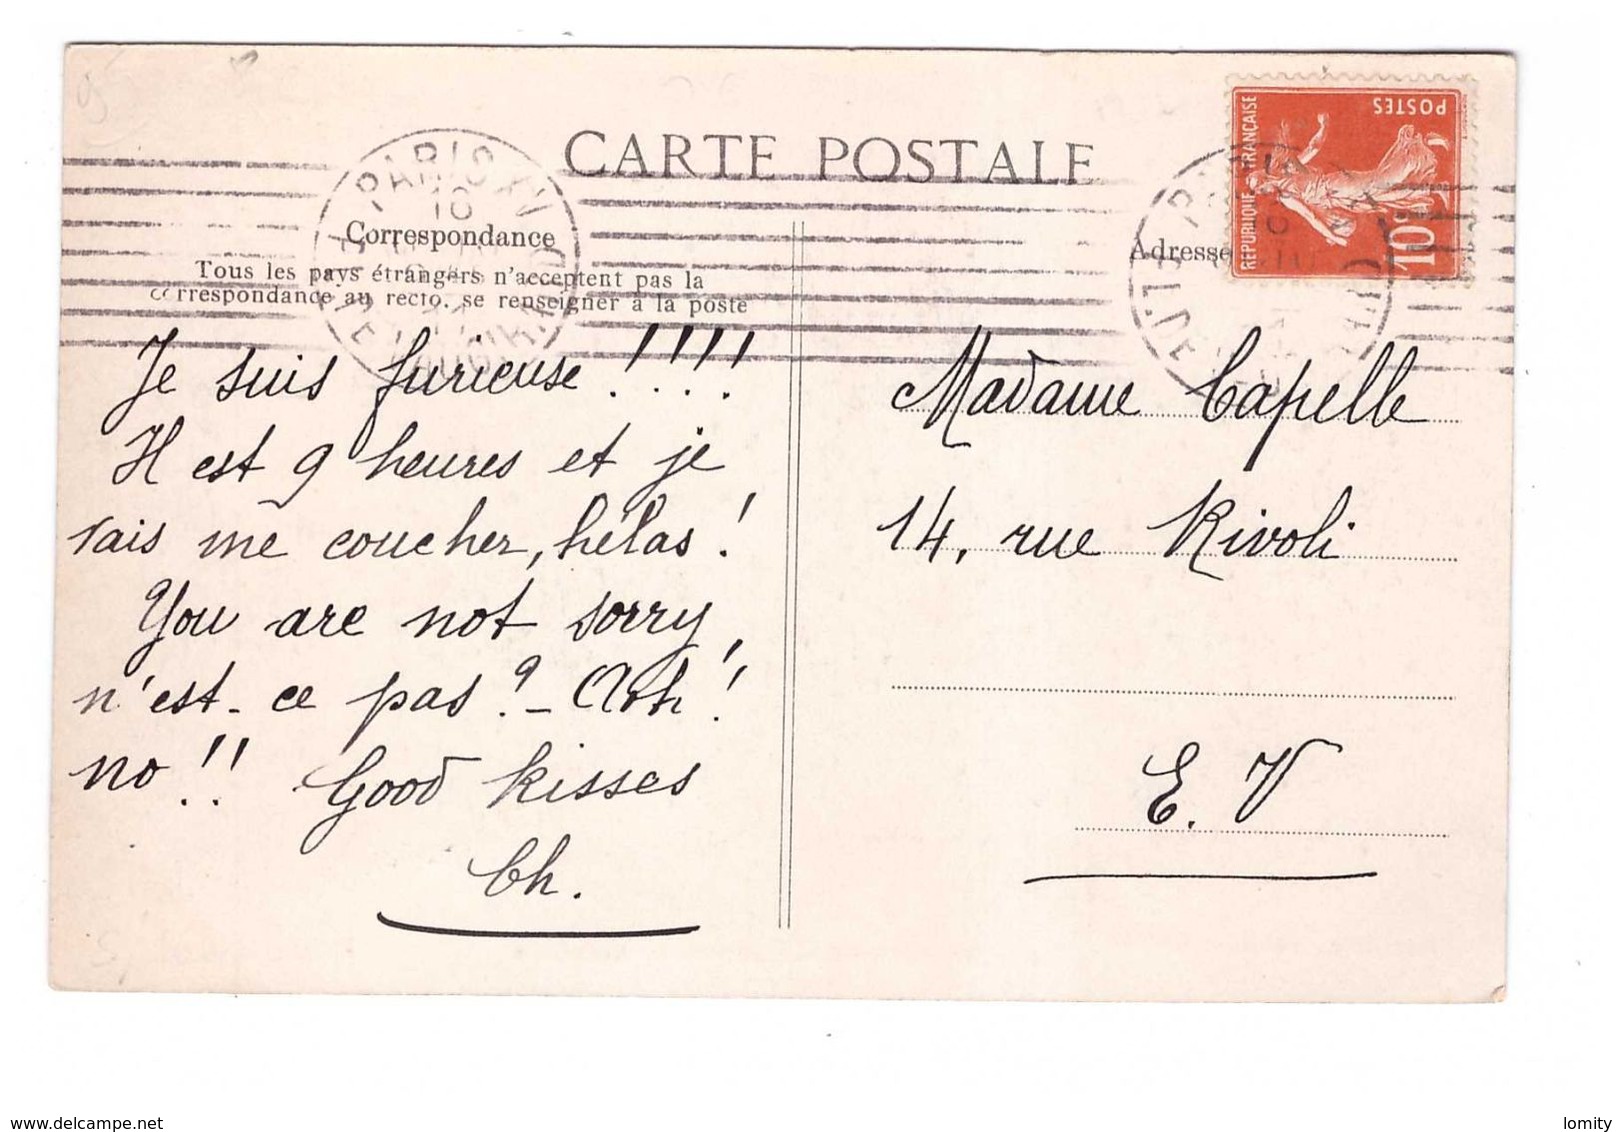 CARTE POSTALE
Correspondance
Tous les pays étrangers n'acceptent pas la
correspondance au recto. se renseigner à la poste
Je suis furieuse !!!!
Il est 9 heures et je
vais me coucher, hélas !
You are not sorry,
n'est-ce pas ? - Aoh !
no !! Good kisses
Ch.
Adresse
REPUBLIQUE FRANÇAISE
POSTES
10
PARIS XV
Madame Capelle
14, rue Rivoli
E. V
delcampe.net
lomity